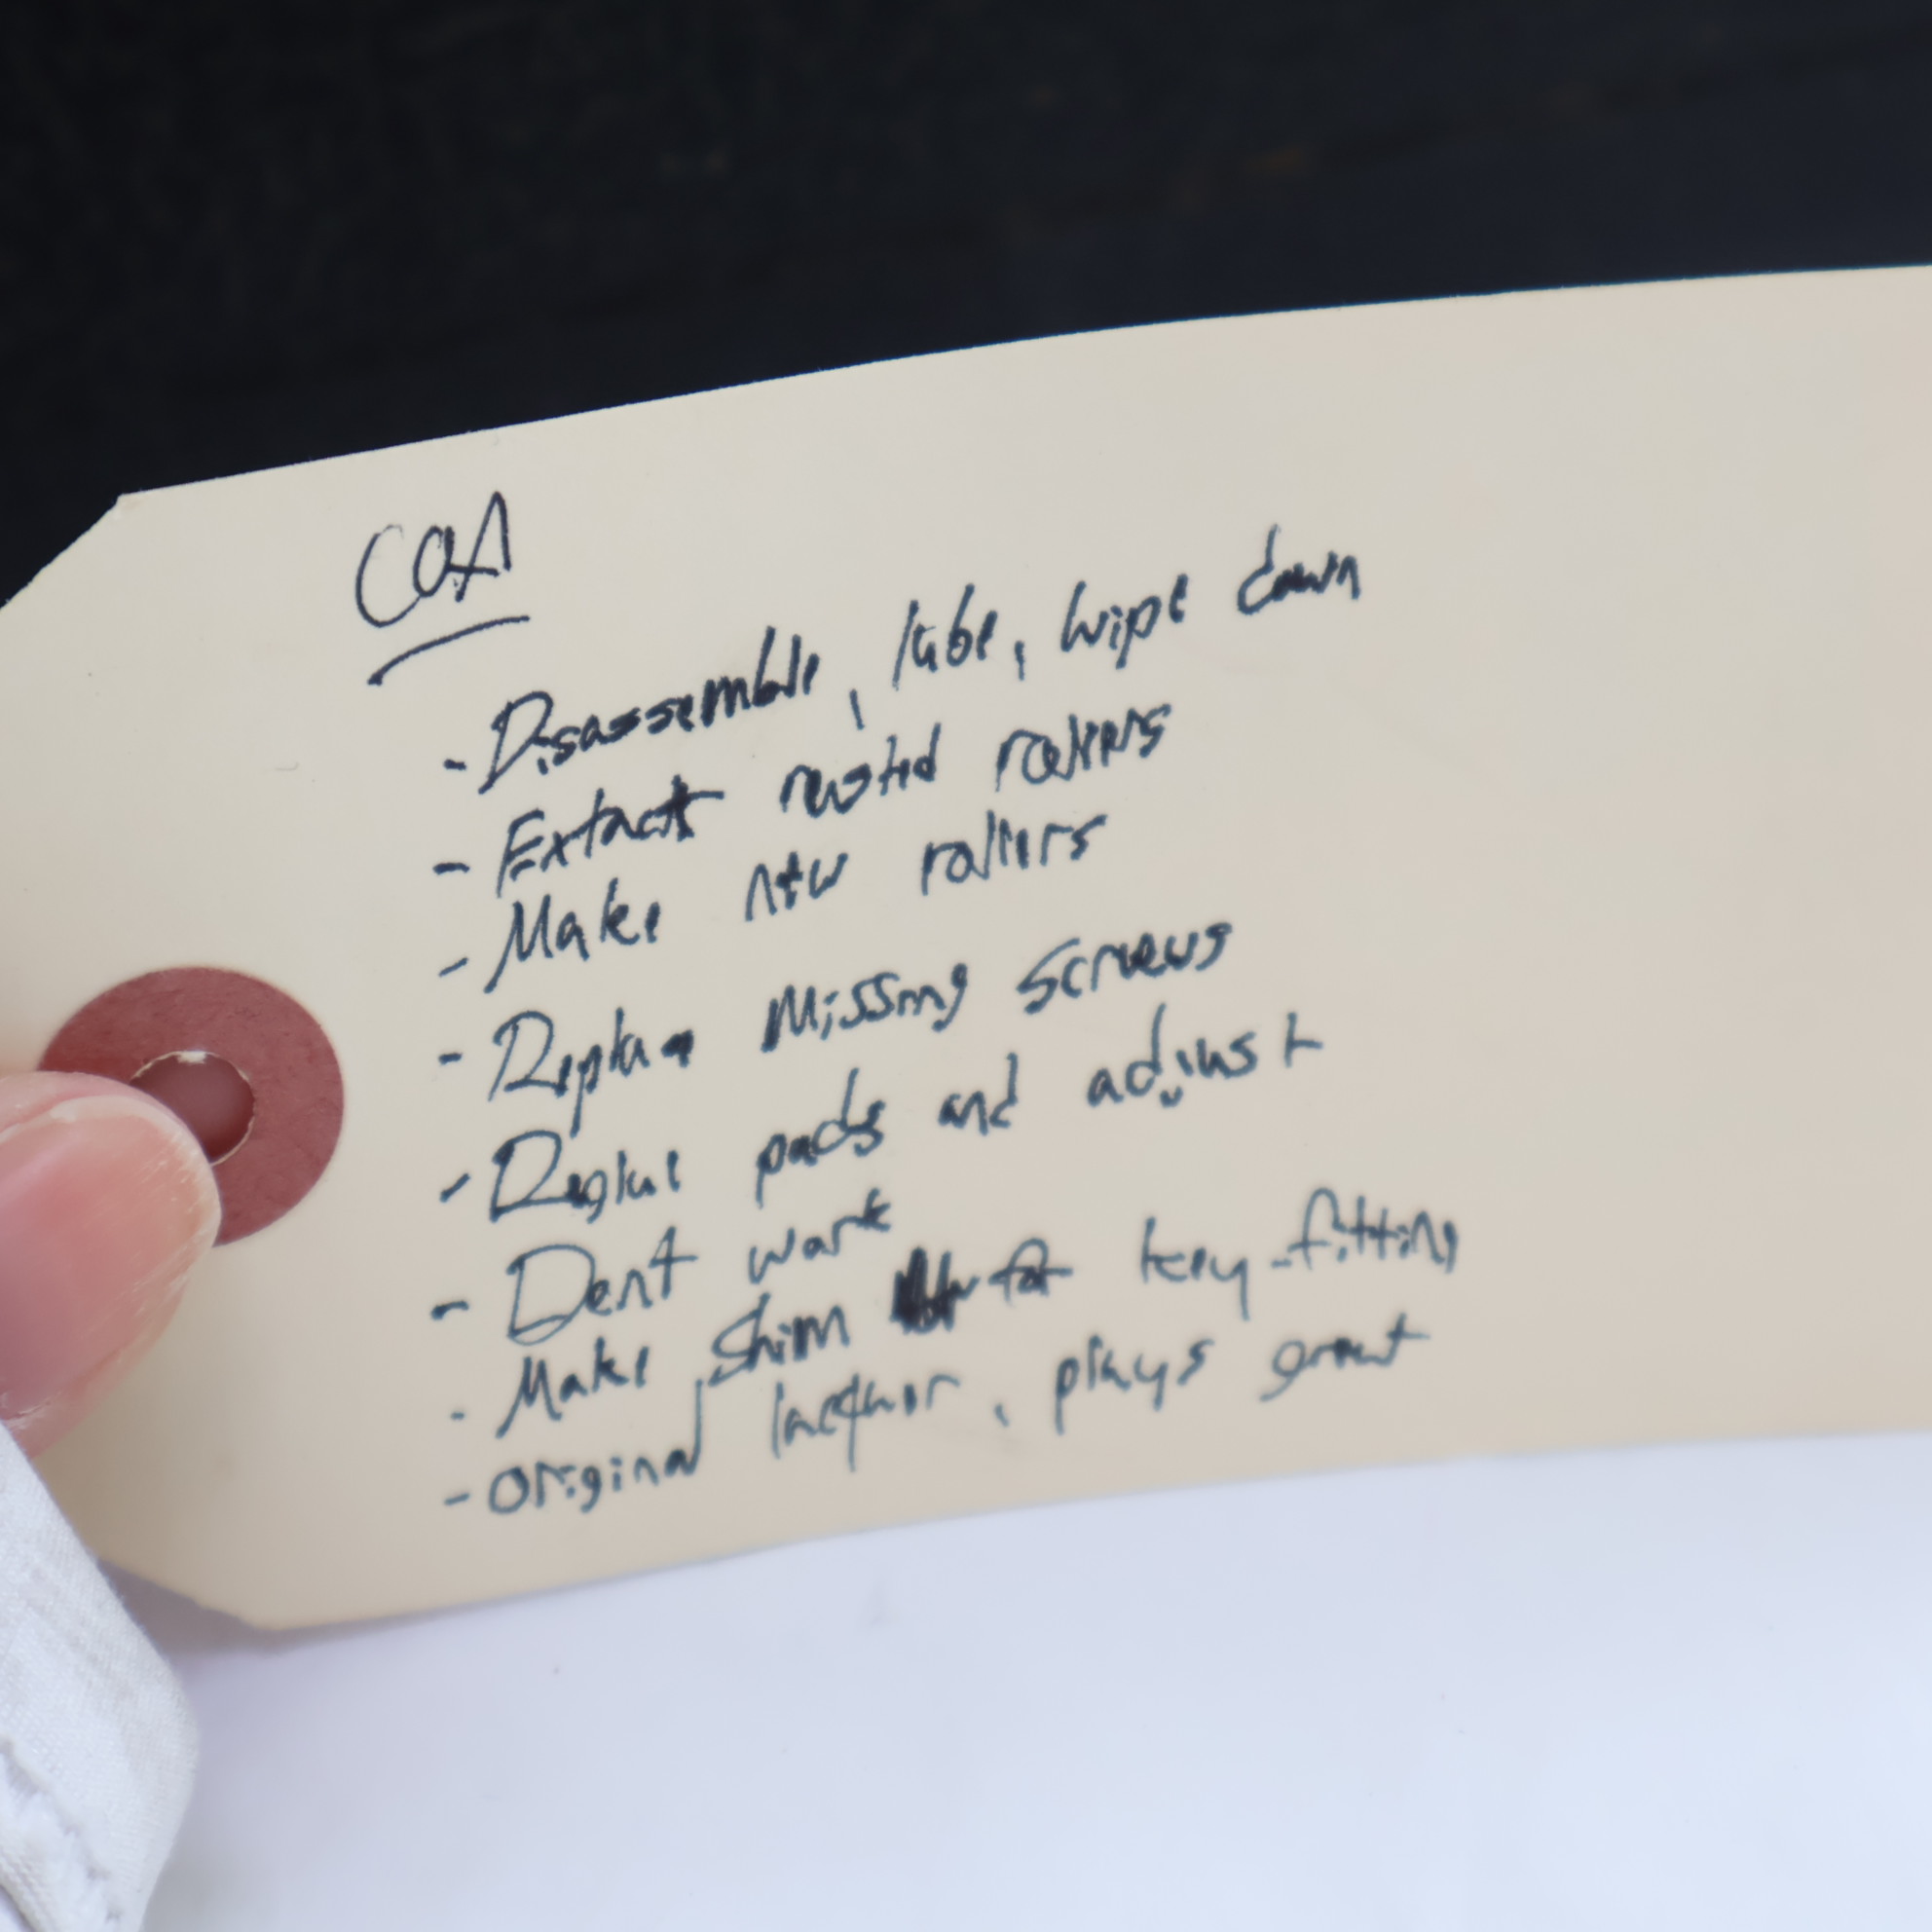 COA
- Disassemble, lube, wipe down
- Extract rusted rollers
- Make new rollers
- Replace missing screws
- Reglue pads and adjust
- Dent work
- Make shim for key-fitting
- Original lacquer, plays great